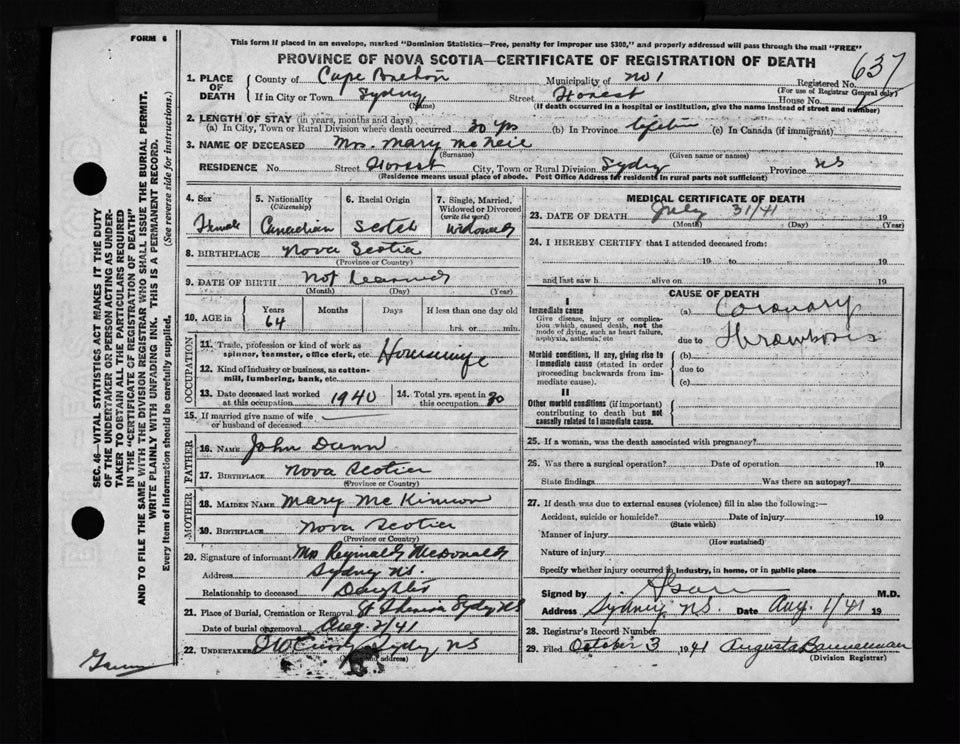 FORM 6
This form if placed in an envelope, marked "Dominion Statistics—Free, penalty for improper use $300," and properly addressed will pass through the mail "FREE"
PROVINCE OF NOVA SCOTIA—CERTIFICATE OF REGISTRATION OF DEATH
637
1. PLACE OF DEATH
County of Cape Breton Municipality of No 1 Registered No.
(For use of Registrar General only)
If in City or Town Sydney Street House No.
(Name) (If death occurred in a hospital or institution, give the name instead of street and number)
2. LENGTH OF STAY (in years, months and days)
(a) In City, Town or Rural Division where death occurred 30 yrs (b) In Province lifetime (c) In Canada (if immigrant)
3. NAME OF DECEASED Mrs. Mary McNeil
(Surname) (Given name or names)
RESIDENCE No. Street City, Town or Rural Division Sydney Province NS
(Residence means usual place of abode. Post Office Address for residents in rural parts not sufficient)
4. Sex Female
5. Nationality (Citizenship) Canadian
6. Racial Origin Scotch
7. Single, Married, Widowed or Divorced (write the word)
8. BIRTHPLACE Nova Scotia
(Province or Country)
9. DATE OF BIRTH Not Learned
(Month) (Day) (Year)
10. AGE in Years Months Days If less than one day old
64 hrs. or min.
OCCUPATION
11. Trade, profession or kind of work as spinner, teamster, office clerk, etc. Housewife
12. Kind of industry or business, as cotton-mill, lumbering, bank, etc.
13. Date deceased last worked at this occupation 1940
14. Total yrs. spent in this occupation
15. If married give name of wife or husband of deceased
FATHER
16. NAME John Dunn
17. BIRTHPLACE Nova Scotia
(Province or Country)
MOTHER
18. MAIDEN NAME Mary McKinnon
19. BIRTHPLACE Nova Scotia
(Province or Country)
20. Signature of informant Mrs Reginald McDonald
Address Sydney NS.
Relationship to deceased Daughter
21. Place of Burial, Cremation or Removal Sydney NS
Date of burial or removal Aug 2/41
22. UNDERTAKER Sydney NS
(Name and address)
MEDICAL CERTIFICATE OF DEATH
23. DATE OF DEATH July 31/41 19
(Month) (Day) (Year)
24. I HEREBY CERTIFY that I attended deceased from:
19 to 19
and last saw h alive on 19
CAUSE OF DEATH
I
Immediate cause
Give disease, injury or complication which caused death, not the mode of dying, such as heart failure, asphyxia, asthenia, etc
(a) Coronary
due to Thrombosis
Morbid conditions, if any, giving rise to immediate cause (stated in order proceeding backwards from immediate cause).
(b)
due to
(c)
II
Other morbid conditions (if important) contributing to death but not causally related to immediate cause.
25. If a woman, was the death associated with pregnancy?
26. Was there a surgical operation? Date of operation 19
State findings Was there an autopsy?
27. If death was due to external causes (violence) fill in also the following:—
Accident, suicide or homicide? Date of injury 19
(State which)
Manner of injury
(How sustained)
Nature of injury
Specify whether injury occurred in industry, in home, or in public place
Signed by M.D.
Address Sydney NS. Date Aug. 1/41 19
28. Registrar's Record Number
29. Filed October 3 1941 Augusta
(Division Registrar)
SEC. 46—VITAL STATISTICS ACT MAKES IT THE DUTY
OF THE UNDERTAKER OR PERSON ACTING AS UNDERTAKER TO OBTAIN ALL THE PARTICULARS REQUIRED
IN THE "CERTIFICATE OF REGISTRATION OF DEATH"
AND TO FILE THE SAME WITH THE DIVISION REGISTRAR WHO SHALL ISSUE THE BURIAL PERMIT.
WRITE PLAINLY WITH UNFADING INK. THIS IS A PERMANENT RECORD.
Every item of information should be carefully supplied. (See reverse side for instructions.)